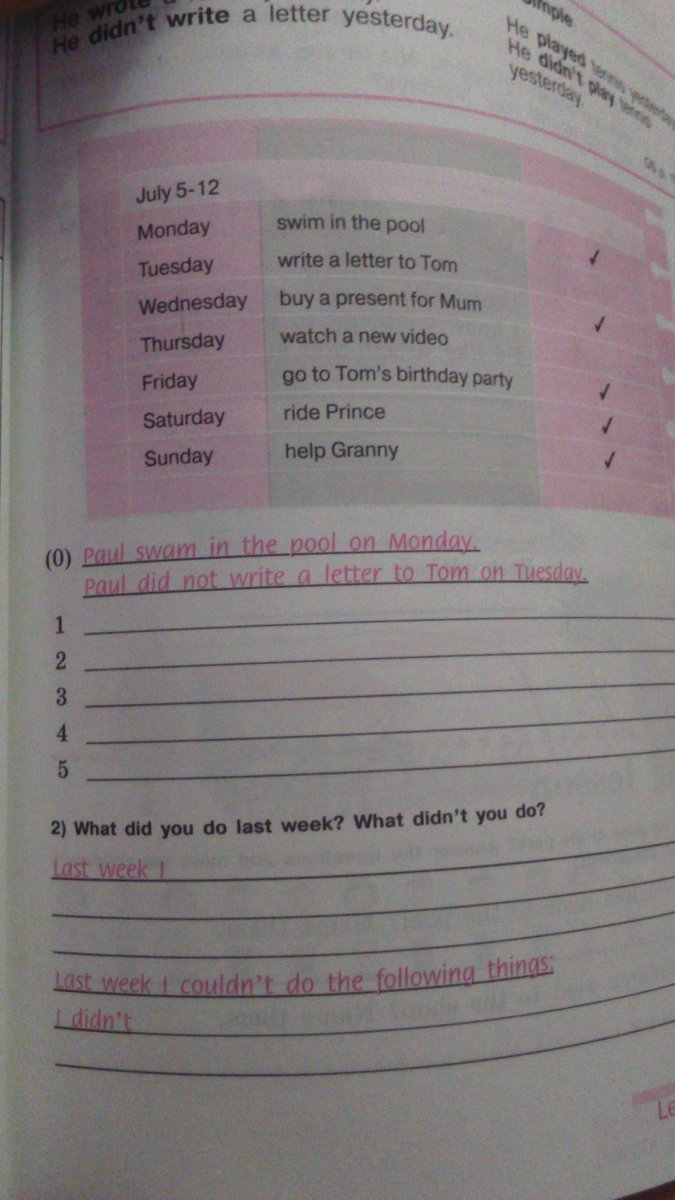 He wrote a
He didn't write a letter yesterday.
He played tennis yesterday
He didn't play tennis
yesterday.
July 5-12
Monday swim in the pool ✓
Tuesday write a letter to Tom
Wednesday buy a present for Mum ✓
Thursday watch a new video
Friday go to Tom's birthday party ✓
Saturday ride Prince ✓
Sunday help Granny ✓
(0) Paul swam in the pool on Monday.
Paul did not write a letter to Tom on Tuesday.
1
2
3
4
5
2) What did you do last week? What didn't you do?
Last week I
Last week I couldn't do the following things:
I didn't